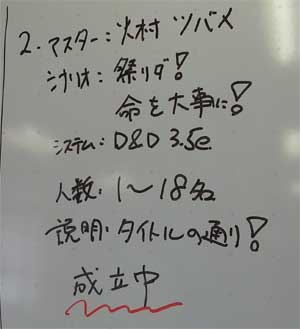 2. マスター: 火村 ツバメ
シナリオ: 祭りダ!
命を大事に!
システム: D&D 3.5e
人数: 1〜18名
説明: タイトルの通り!
成立中